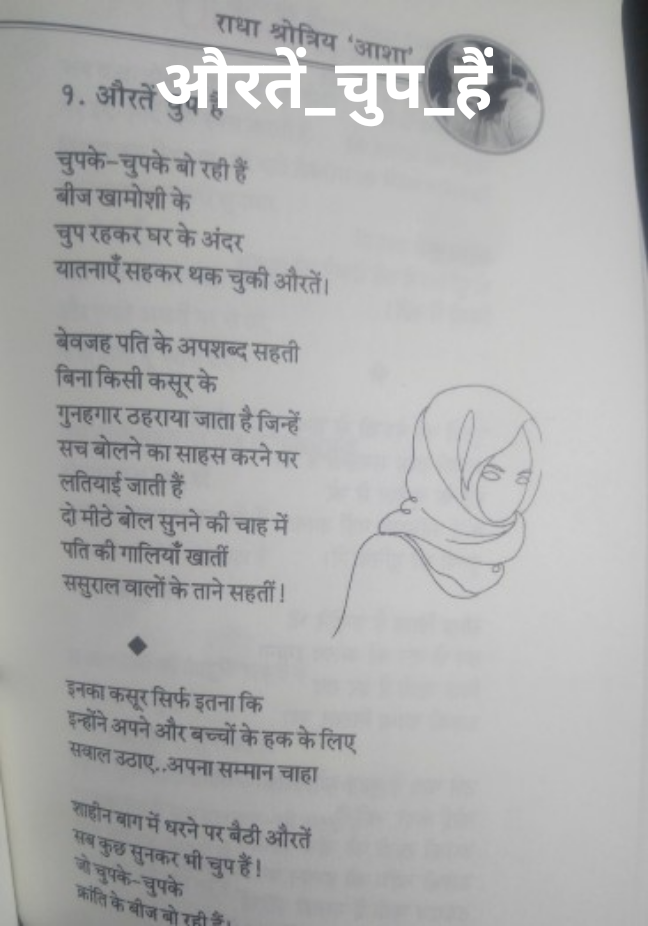 राधा श्रोत्रिय 'आशा'
औरतें_चुप_हैं
१. औरतें चुप हैं
चुपके-चुपके बो रही हैं
बीज खामोशी के
चुप रहकर घर के अंदर
यातनाएँ सहकर थक चुकी औरतें।
बेवजह पति के अपशब्द सहती
बिना किसी कसूर के
गुनहगार ठहराया जाता है जिन्हें
सच बोलने का साहस करने पर
लतियाई जाती हैं
दो मीठे बोल सुनने की चाह में
पति की गालियाँ खातीं
ससुराल वालों के ताने सहतीं!
इनका कसूर सिर्फ इतना कि
इन्होंने अपने और बच्चों के हक के लिए
सवाल उठाए..अपना सम्मान चाहा
शाहीन बाग में धरने पर बैठी औरतें
सब कुछ सुनकर भी चुप हैं!
जो चुपके-चुपके
क्रांति के बीज बो रही हैं।